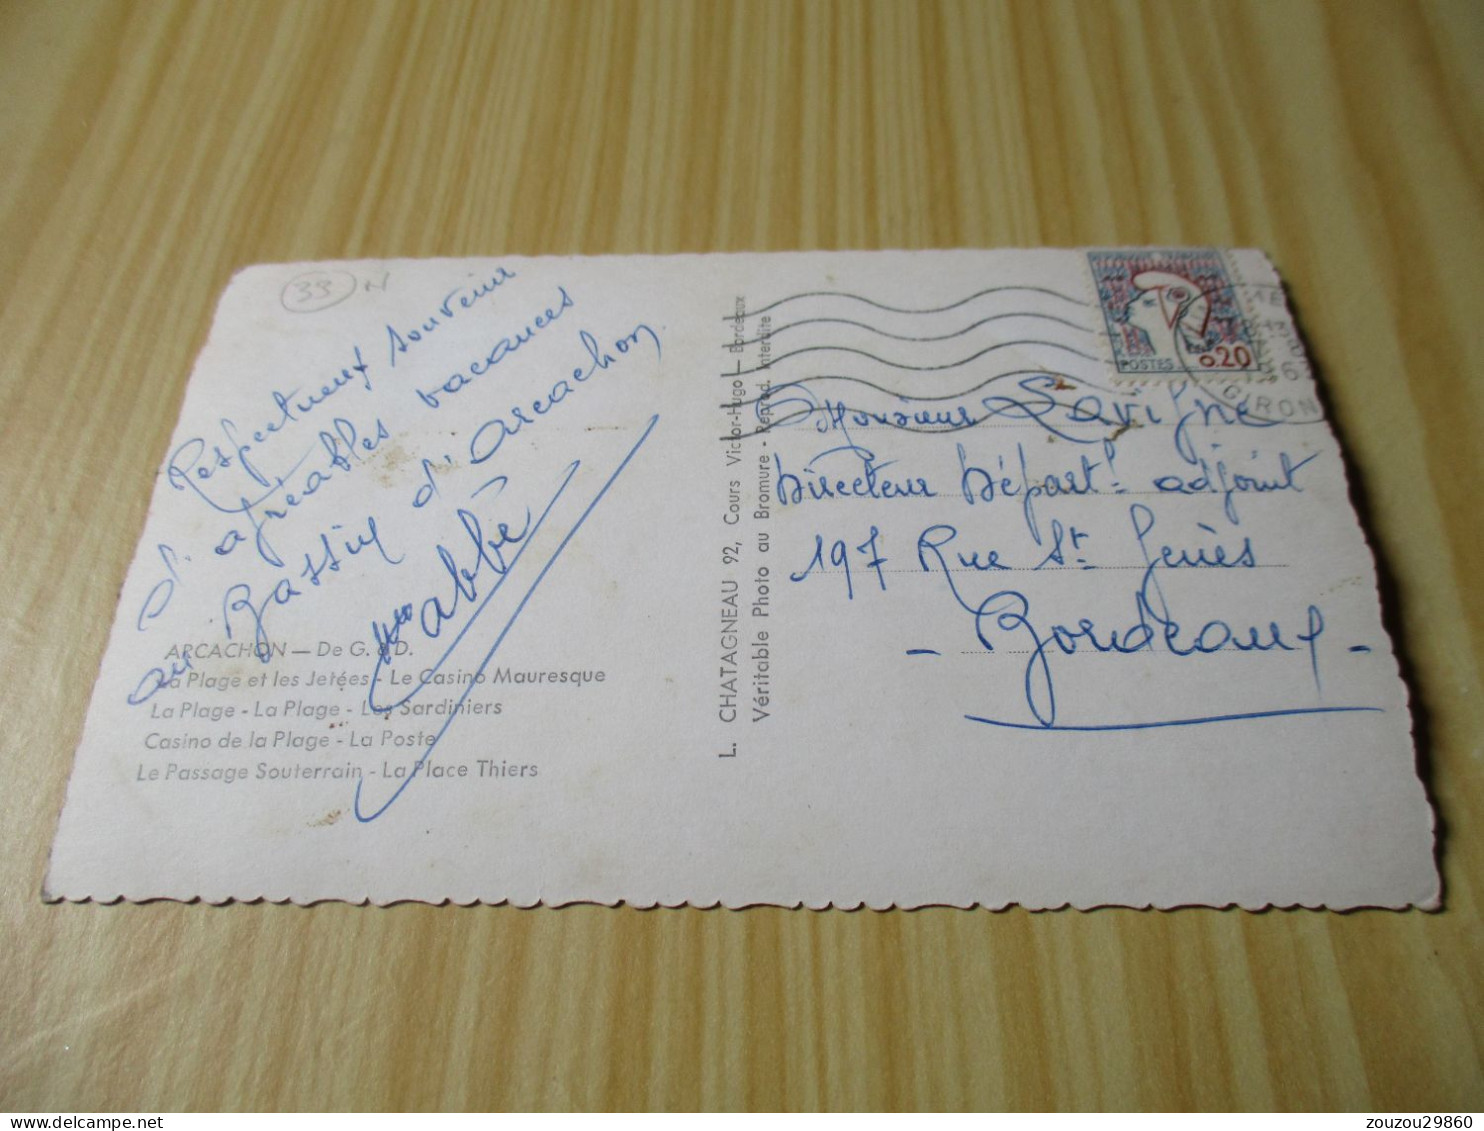 33
Respectueux souvenir
d'agréables vacances
au Bassin d'Arcachon
abbé
ARCACHON — De G. à D.
La Plage et les Jetées - Le Casino Mauresque
La Plage - La Plage - Les Sardiniers
Casino de la Plage - La Poste
Le Passage Souterrain - La Place Thiers
L. CHATAGNEAU 92, Cours Victor-Hugo — Bordeaux
Véritable Photo au Bromure - Reprod. Interdite
POSTES 0.20
GIRON
Monsieur Lavigne
Directeur Départ.l adjoint
197 Rue St. Genès
- Bordeaux -
zouzou29860
delcampe.net